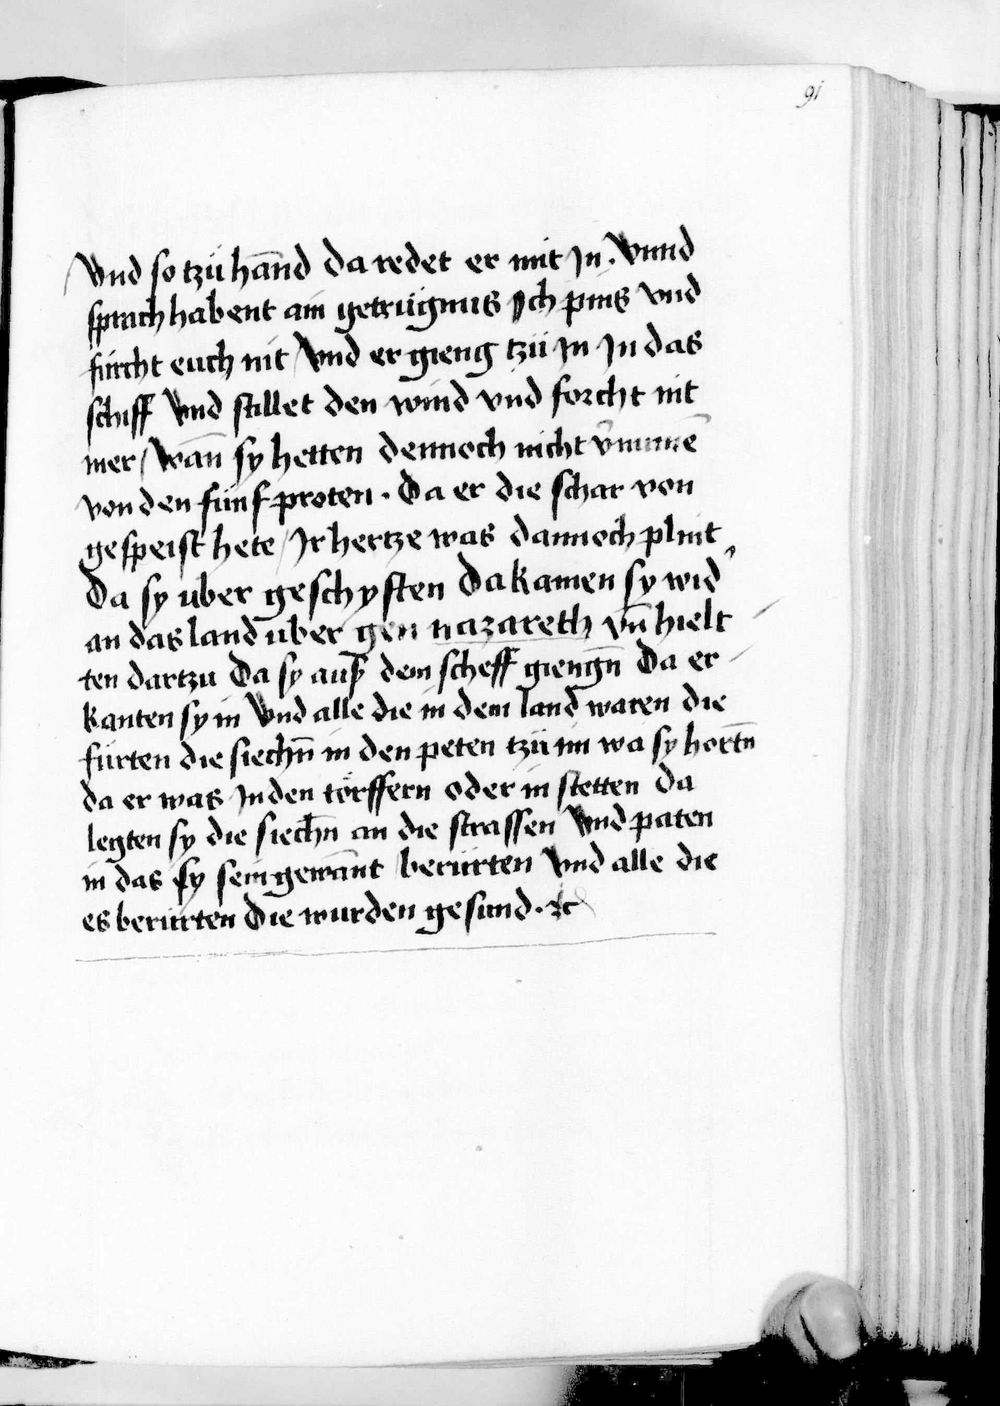 91
Vnd so tzü hānd da redet er mit Jn. Vnnd
sprach habent ain getrügnus Jch pins vnd
fürcht euch nit Vnd er gieng tzü Jn Jn das
schiff Vnd stillet den wind vnd forcht nit
mer / Wān sy hetten dennoch nicht
von den fünf proten. Da er die schar von
gespeist hete / Jr hertze was dannoch plint
Da sy uber geschyften Da kamen sy wid'
an das land uber gen nazareth vn̄ hielt
ten dartzu Da sy auß dem scheff giengn̄ Da er
kanten sy in Vnd alle die in dem land waren die
fürten die siechn̄ in den peten tzü im wa sy hortn̄
da er was Jn den törffern oder in stetten da
legten sy die siechn̄ an die strassen Vnd paten
in das sy sein gewānt berürten Vnd alle die
es berürten Die wurden gesund. ⁊c